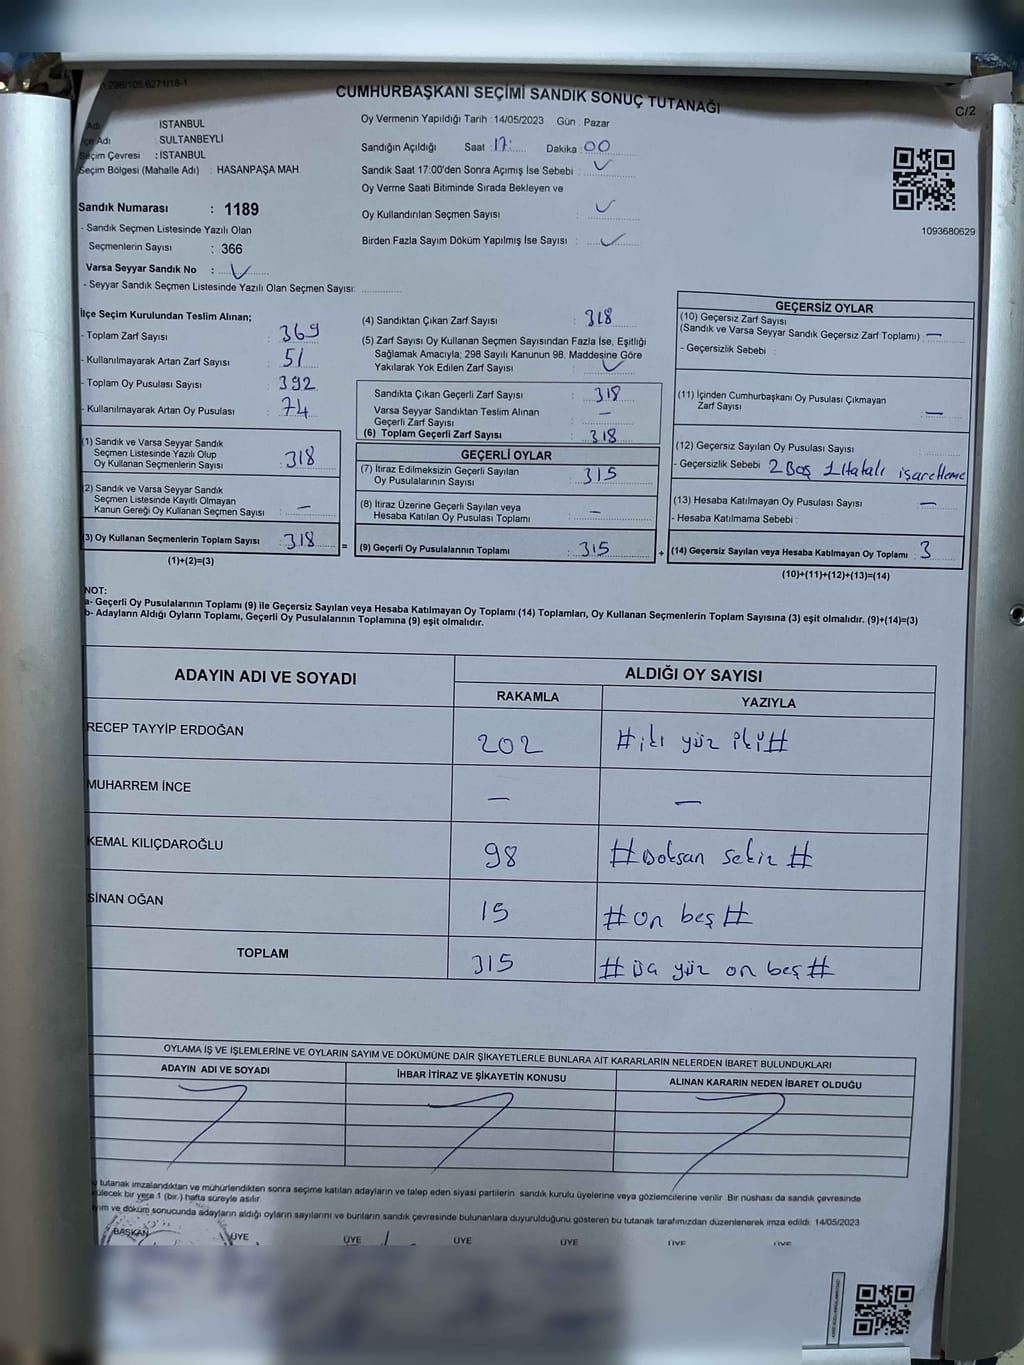 .298/105.6271/18-1
CUMHURBAŞKANI SEÇİMİ SANDIK SONUÇ TUTANAĞI
C/2
Adı : İSTANBUL
Adı : SULTANBEYLİ
Seçim Çevresi : İSTANBUL
Seçim Bölgesi (Mahalle Adı) : HASANPAŞA MAH
Sandık Numarası : 1189
- Sandık Seçmen Listesinde Yazılı Olan
Seçmenlerin Sayısı : 366
Varsa Seyyar Sandık No :
- Seyyar Sandık Seçmen Listesinde Yazılı Olan Seçmen Sayısı:
Oy Vermenin Yapıldığı Tarih : 14/05/2023 Gün : Pazar
Sandığın Açıldığı Saat : 17: Dakika : 00
Sandık Saat 17:00'den Sonra Açımış İse Sebebi :
Oy Verme Saati Bitiminde Sırada Bekleyen ve
Oy Kullandırılan Seçmen Sayısı :
Birden Fazla Sayım Döküm Yapılmış İse Sayısı :
1093680629
İlçe Seçim Kurulundan Teslim Alınan;
- Toplam Zarf Sayısı : 369
- Kullanılmayarak Artan Zarf Sayısı : 51
- Toplam Oy Pusulası Sayısı : 392
- Kullanılmayarak Artan Oy Pusulası : 74
(1) Sandık ve Varsa Seyyar Sandık
Seçmen Listesinde Yazılı Olup
Oy Kullanan Seçmenlerin Sayısı : 318
(2) Sandık ve Varsa Seyyar Sandık
Seçmen Listesinde Kayıtlı Olmayan
Kanun Gereği Oy Kullanan Seçmen Sayısı : —
(3) Oy Kullanan Seçmenlerin Toplam Sayısı : 318
(1)+(2)=(3)
(4) Sandıktan Çıkan Zarf Sayısı : 318
(5) Zarf Sayısı Oy Kullanan Seçmen Sayısından Fazla İse, Eşitliği
Sağlamak Amacıyla; 298 Sayılı Kanunun 98. Maddesine Göre
Yakılarak Yok Edilen Zarf Sayısı :
Sandıkta Çıkan Geçerli Zarf Sayısı : 318
Varsa Seyyar Sandıktan Teslim Alınan
Geçerli Zarf Sayısı : —
(6) Toplam Geçerli Zarf Sayısı : 318
GEÇERLİ OYLAR
(7) İtiraz Edilmeksizin Geçerli Sayılan
Oy Pusulalarının Sayısı : 315
(8) İtiraz Üzerine Geçerli Sayılan veya
Hesaba Katılan Oy Pusulası Toplamı : —
= (9) Geçerli Oy Pusulalarının Toplamı : 315
GEÇERSİZ OYLAR
(10) Geçersiz Zarf Sayısı
(Sandık ve Varsa Seyyar Sandık Geçersiz Zarf Toplamı) : —
- Geçersizlik Sebebi :
(11) İçinden Cumhurbaşkanı Oy Pusulası Çıkmayan
Zarf Sayısı : —
(12) Geçersiz Sayılan Oy Pusulası Sayısı :
- Geçersizlik Sebebi : 2 Boş 1 Hatalı işaretleme
(13) Hesaba Katılmayan Oy Pusulası Sayısı : —
- Hesaba Katılmama Sebebi :
+ (14) Geçersiz Sayılan veya Hesaba Katılmayan Oy Toplamı : 3
(10)+(11)+(12)+(13)=(14)
NOT:
a- Geçerli Oy Pusulalarının Toplamı (9) ile Geçersiz Sayılan veya Hesaba Katılmayan Oy Toplamı (14) Toplamları, Oy Kullanan Seçmenlerin Toplam Sayısına (3) eşit olmalıdır. (9)+(14)=(3)
b- Adayların Aldığı Oyların Toplamı, Geçerli Oy Pusulalarının Toplamına (9) eşit olmalıdır.
ADAYIN ADI VE SOYADI ALDIĞI OY SAYISI
RAKAMLA YAZIYLA
RECEP TAYYİP ERDOĞAN 202 #iki yüz iki#
MUHARREM İNCE — —
KEMAL KILIÇDAROĞLU 98 #Doksan sekiz#
SİNAN OĞAN 15 #on beş#
TOPLAM 315 #üç yüz on beş#
OYLAMA İŞ VE İŞLEMLERİNE VE OYLARIN SAYIM VE DÖKÜMÜNE DAİR ŞİKAYETLERLE BUNLARA AİT KARARLARIN NELERDEN İBARET BULUNDUKLARI
ADAYIN ADI VE SOYADI İHBAR İTİRAZ VE ŞİKAYETİN KONUSU ALINAN KARARIN NEDEN İBARET OLDUĞU
tutanak imzalandıktan ve mühürlendikten sonra seçime katılan adayların ve talep eden siyasi partilerin sandık kurulu üyelerine veya gözlemcilerine verilir. Bir nüshası da sandık çevresinde
bir yere 1 (bir) hafta süreyle asılır.
ve döküm sonucunda adayların aldığı oyların sayılarını ve bunların sandık çevresinde bulunanlara duyurulduğunu gösteren bu tutanak tarafımızdan düzenlenerek imza edildi. 14/05/2023
BAŞKAN ÜYE ÜYE ÜYE ÜYE ÜYE ÜYE